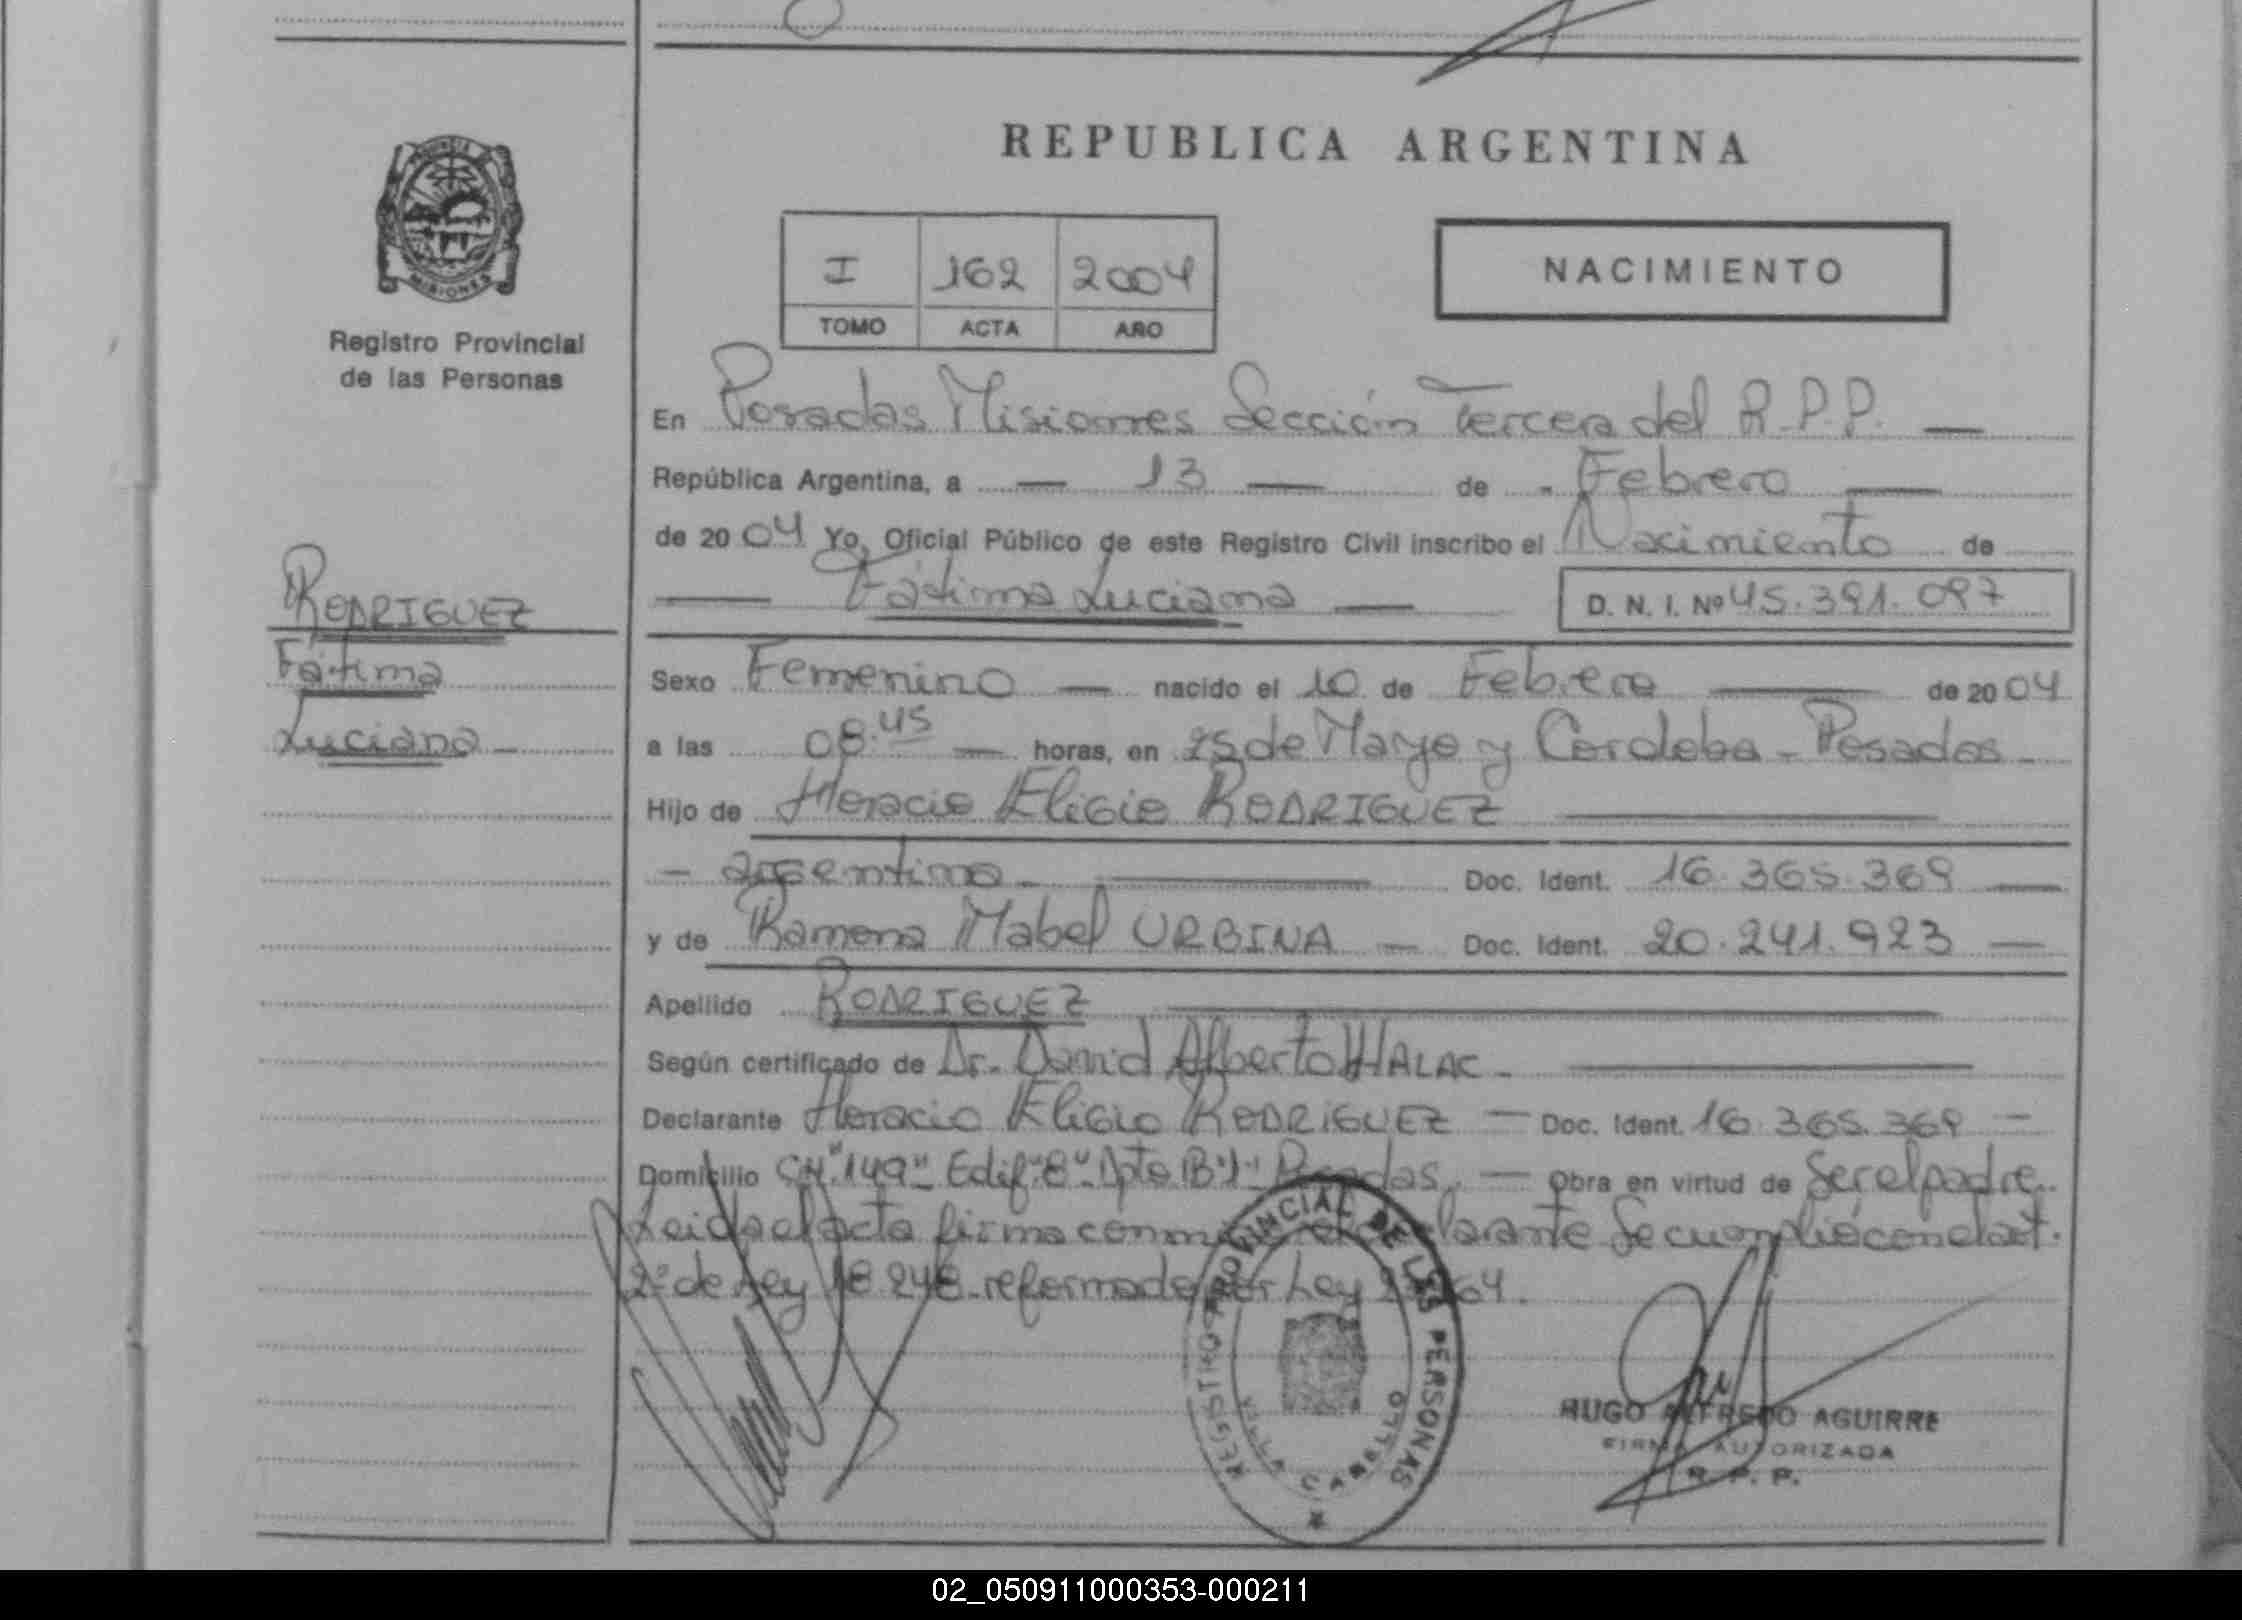 REPUBLICA ARGENTINA
PROVINCIA
MISIONES
Registro Provincial
de las Personas
I 162 2004
TOMO ACTA AÑO
NACIMIENTO
En Posadas Misiones Sección Tercera del R.P.P. —
República Argentina, a — 13 — de - Febrero —
de 2004 Yo, Oficial Público de este Registro Civil inscribo el Nacimiento de
— Fátima Luciana — D. N. I. Nº 45.391.097
RODRIGUEZ
Fátima
Luciana -
Sexo Femenino — nacido el 10 de Febrero — de 2004
a las 08.45 — horas, en 25 de Mayo y Cordoba - Posadas -
Hijo de Horacio Eligio RODRIGUEZ —
- argentino - — Doc. Ident. 16.365.369 —
y de Ramona Mabel URBINA — Doc. Ident. 20.241.923 —
Apellido RODRIGUEZ —
Según certificado de Dr. David Alberto HALAC - —
Declarante Horacio Eligio RODRIGUEZ — Doc. Ident. 16.365.369 —
Domicilio CH."149" Edif"8" Dpto Posadas. — Obra en virtud de Ser el padre.
Leida el acta firma declarante Se cumplió con el art.
2º de Ley 18.248 reformada por Ley
REGISTRO PROVINCIAL DE LAS PERSONAS
VILLA CABELLO
HUGO ALFREDO AGUIRRE
FIRMA AUTORIZADA
R. P. P.
02_050911000353-000211